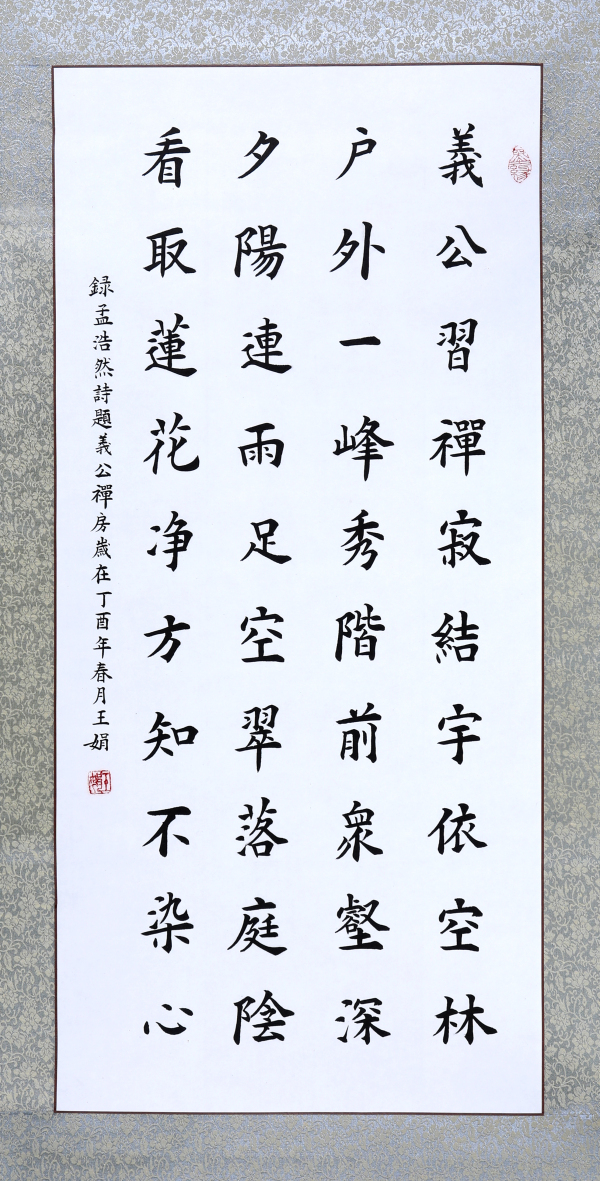 義公習禪寂結宇依空林
户外一峰秀階前衆壑深
夕陽連雨足空翠落庭陰
看取蓮花净方知不染心
録孟浩然詩題義公禪房歲在丁酉年春月王娟